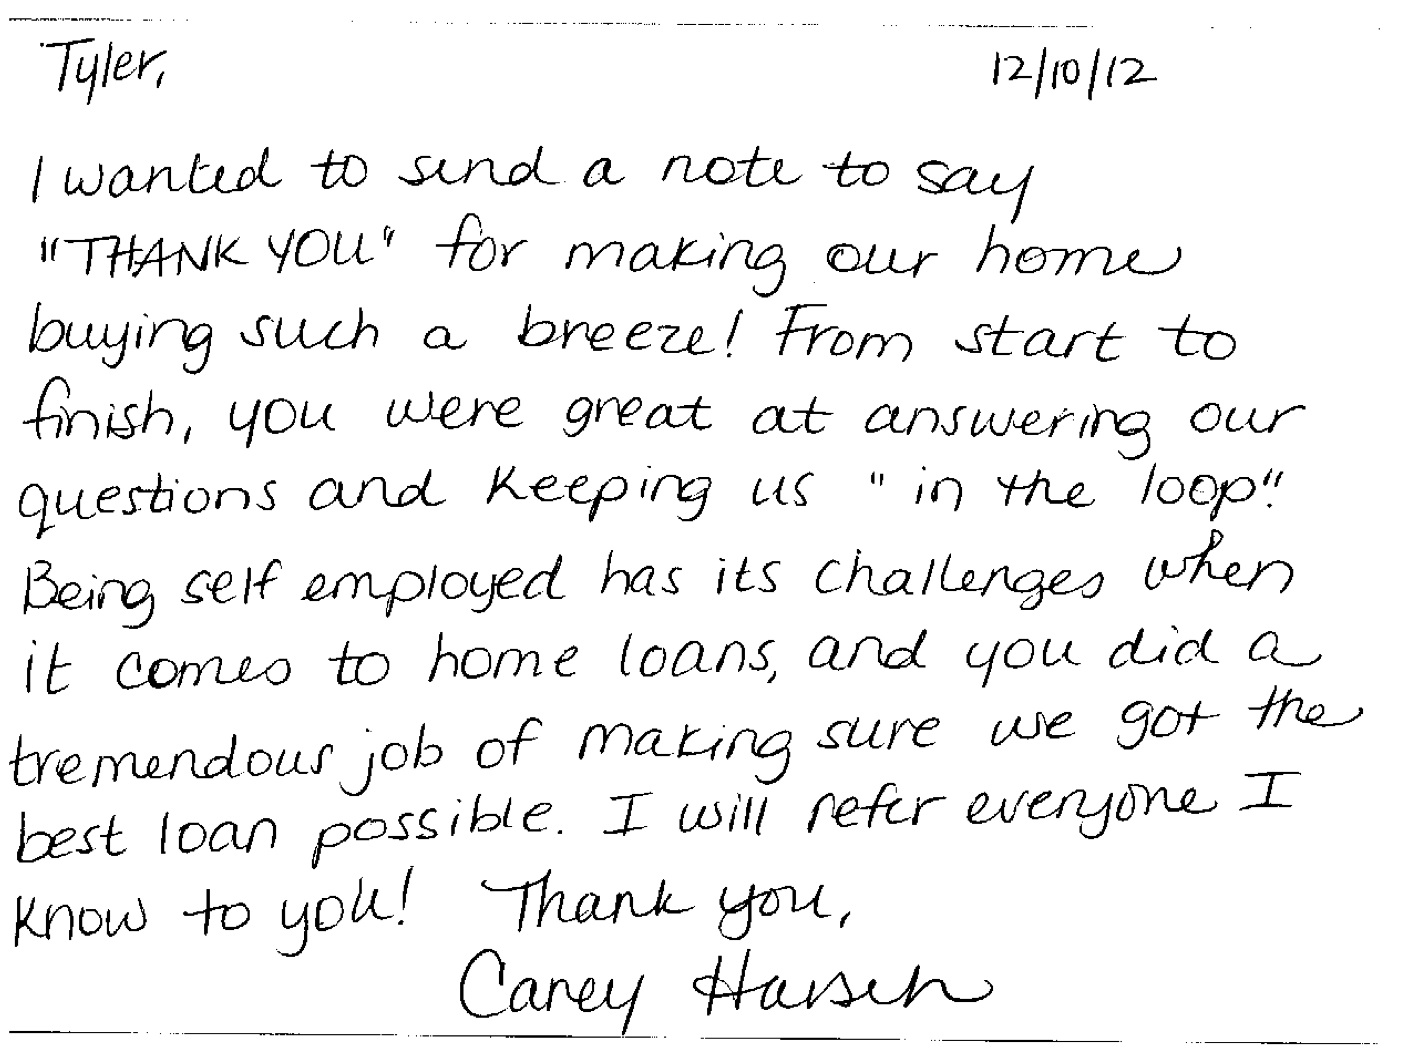 Tyler, 12/10/12
I wanted to send a note to say
"THANK YOU" for making our home
buying such a breeze! From start to
finish, you were great at answering our
questions and keeping us "in the loop".
Being self employed has its challenges when
it comes to home loans, and you did a
tremendous job of making sure we got the
best loan possible. I will refer everyone I
know to you! Thank you,